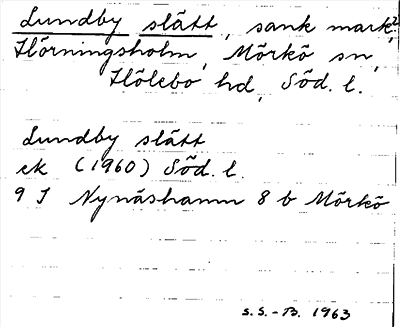 Lundby slätt, sank mark,?
Hörningsholm, Mörkö sn,
Hölebo hd, Söd. l.
Lundby slätt
ek (1960) Söd. l.
9 I Nynäshamn 8 b Mörkö
S.S.-B. 1963